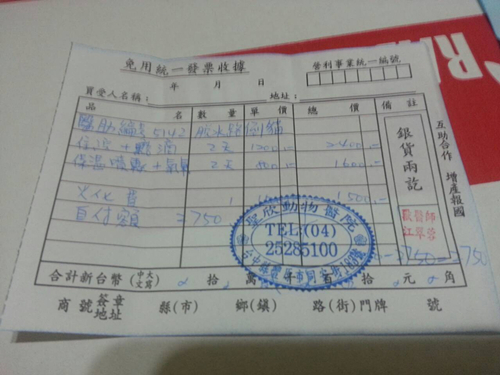 免用統一發票收據
營利事業統一編號
年 月 日
買受人名稱： 地址：
品名 數量 單價 總價 備註
醫助編號 5142
住院 + 點滴 2天 1200.- 2400.-
保溫燈費 + 氧氣 2天 800.- 1600.-
火化費 1 1500.-
自付額 2750
銀貨兩訖
互助合作 增產報國
聖欣動物醫院
TEL:(04)
25285100
合計新台幣(中文大寫) 拾 萬 仟 百 拾 元 角
商號簽章地址 縣(市) 鄉(鎮) 路(街)門牌 號